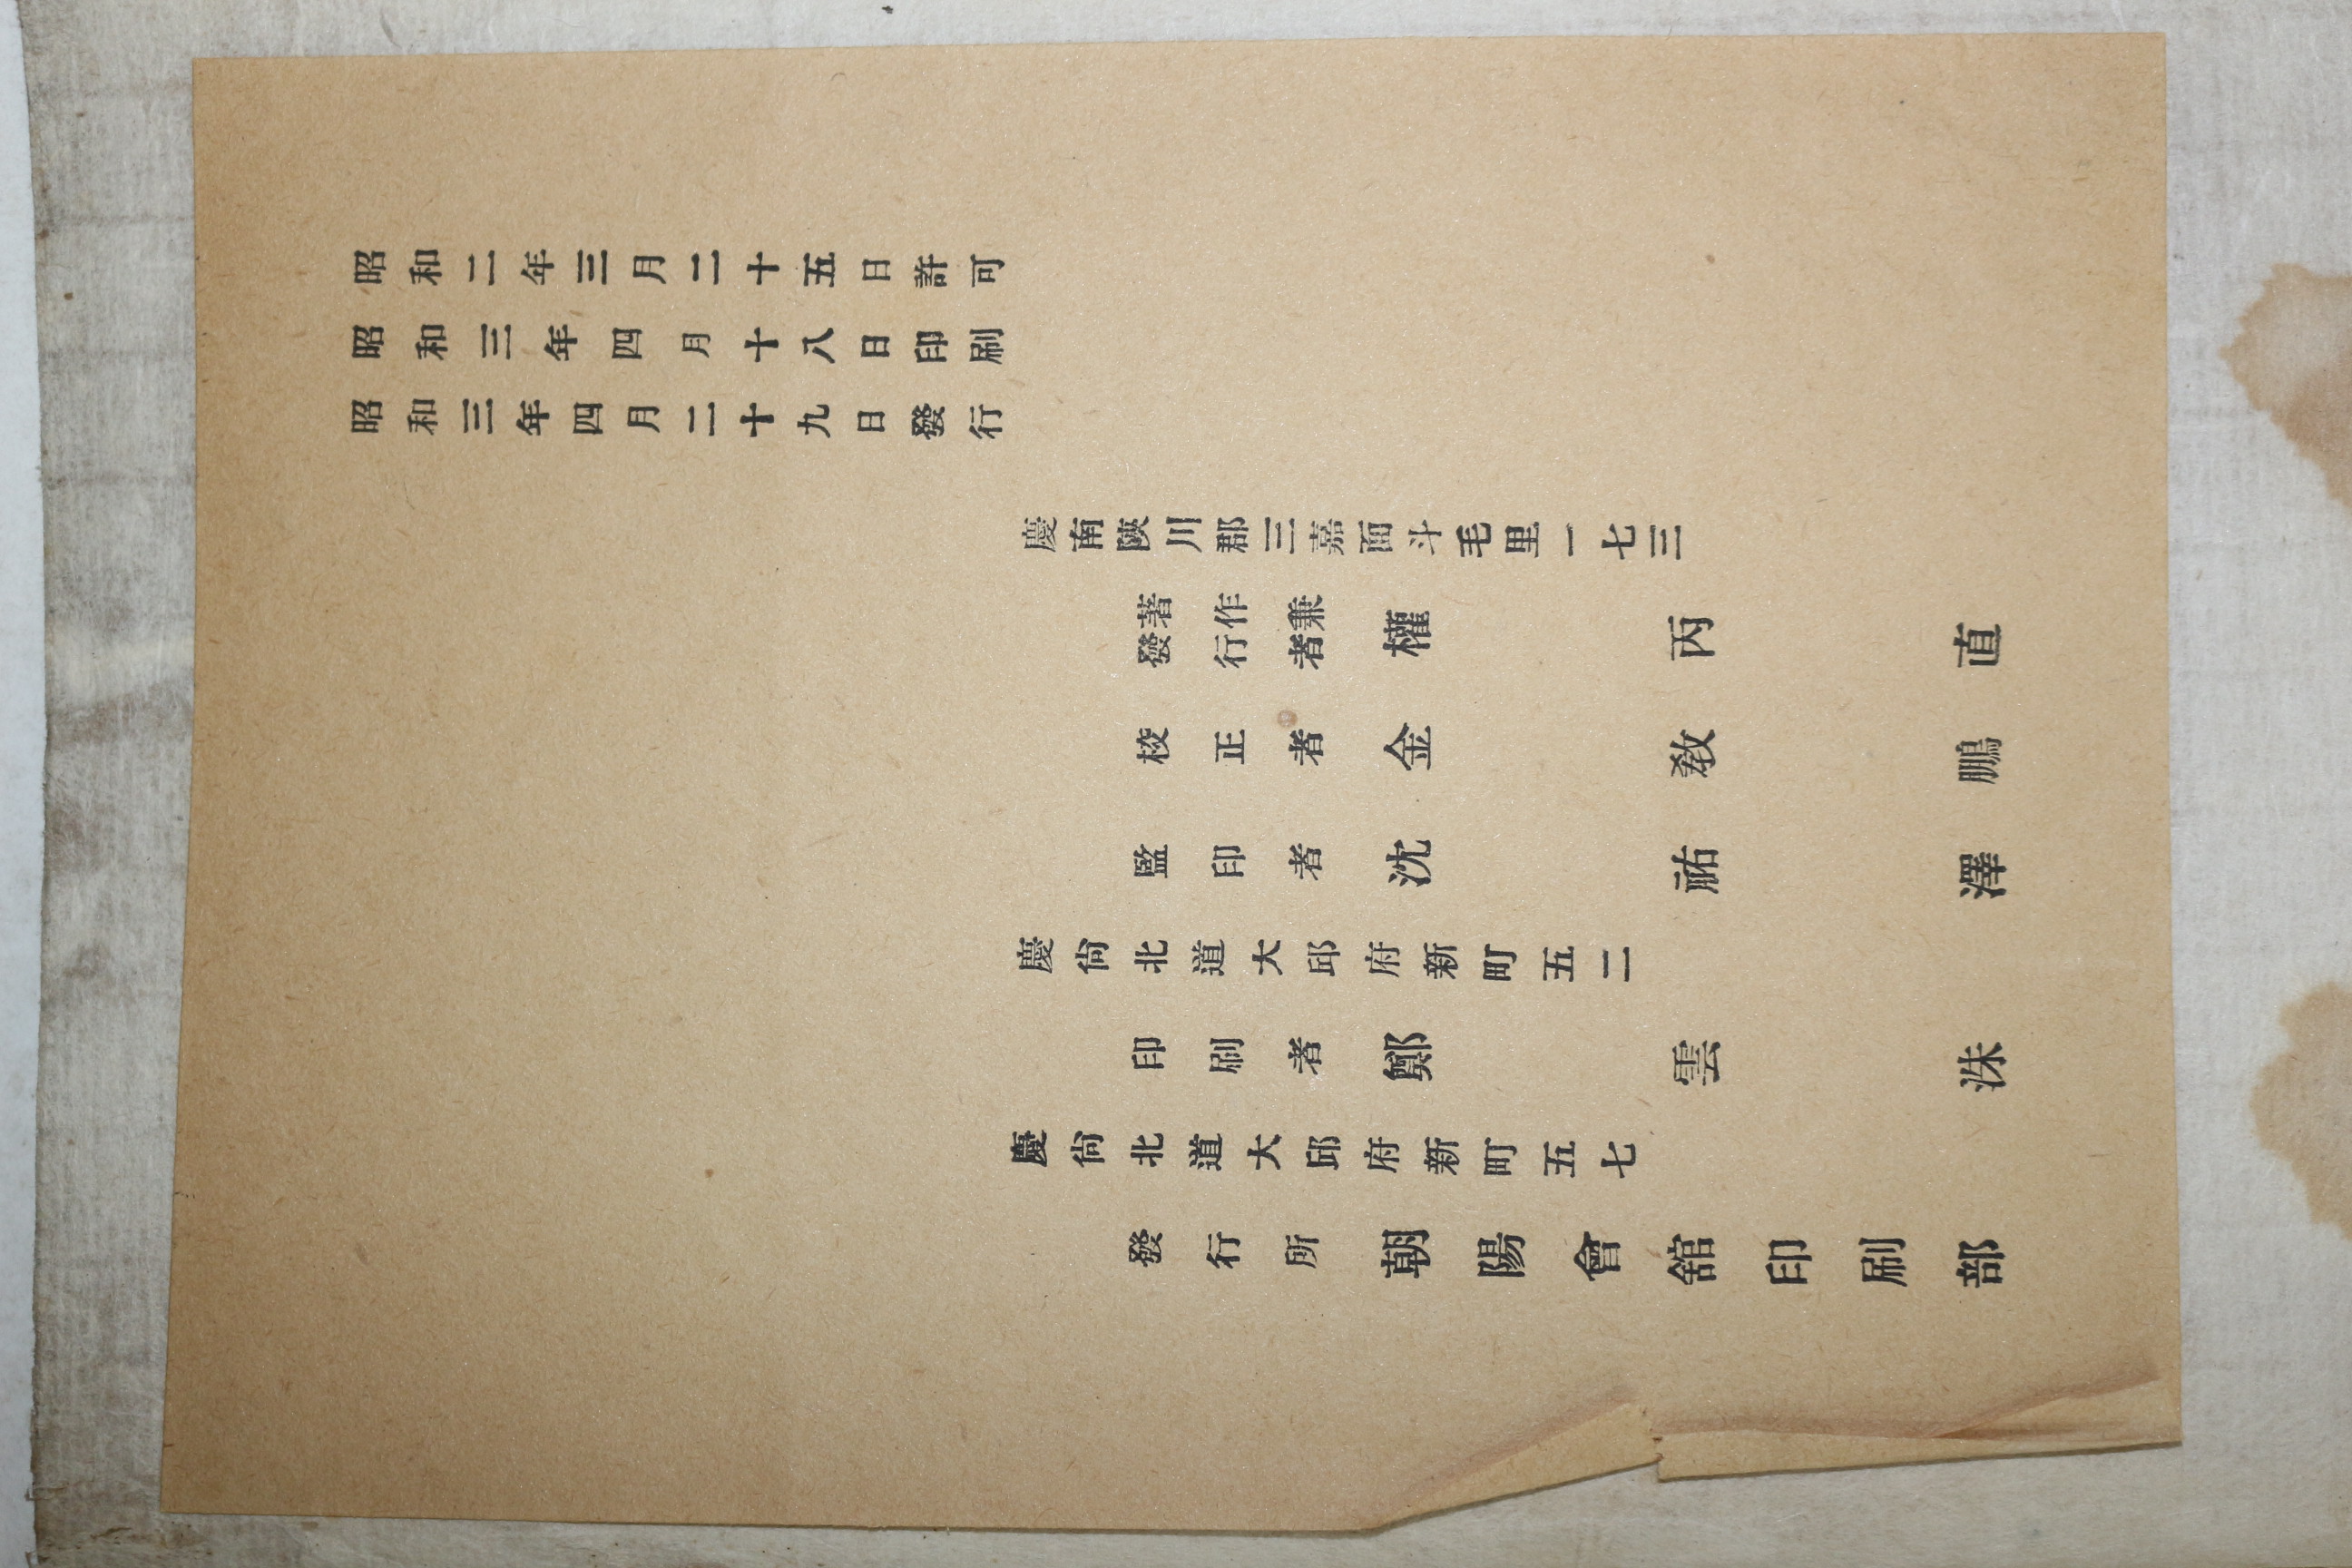 昭和二年三月二十五日許可
昭和三年四月十八日印刷
昭和三年四月二十九日發行
慶南陜川郡三嘉面斗毛里一七三
著作兼
發行者 權丙直
校正者 金敎鵬
監印者 沈祐澤
慶尙北道大邱府新町五二
印刷者 鄭雲洙
慶尙北道大邱府新町五七
發行所 朝陽會舘印刷部